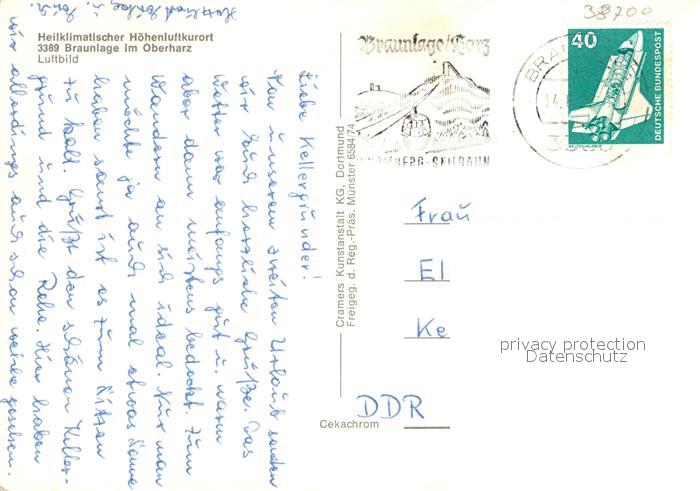 38700
Heilklimatischer Höhenluftkurort
3389 Braunlage im Oberharz
Luftbild
Liebe Kellergründer!
Von unserem zweiten Urlaub senden
wir Euch herzliche Grüße. Das
Wetter war anfangs gut u. warm
aber dann meistens bedeckt. Zum
Wandern an sich ideal. Nur man
möchte ja auch mal etwas Sonne
haben sonst ist es zum Sitzen
zu kalt. Grüßt den schönen Keller-
grund und die Rehe. Hier haben
wir allerdings auch schon welche gesehen.
Herzlichst
Cramers Kunstanstalt KG, Dortmund
Freigeg. d. Reg.-Präs. Münster 6584/74
Cekachrom
Braunlage/Harz
BERG-SEILBAHN
BRAU
40
DEUTSCHE BUNDESPOST
WELTRAUMLABOR
Frau
El
Ke
DDR
privacy protection
Datenschutz